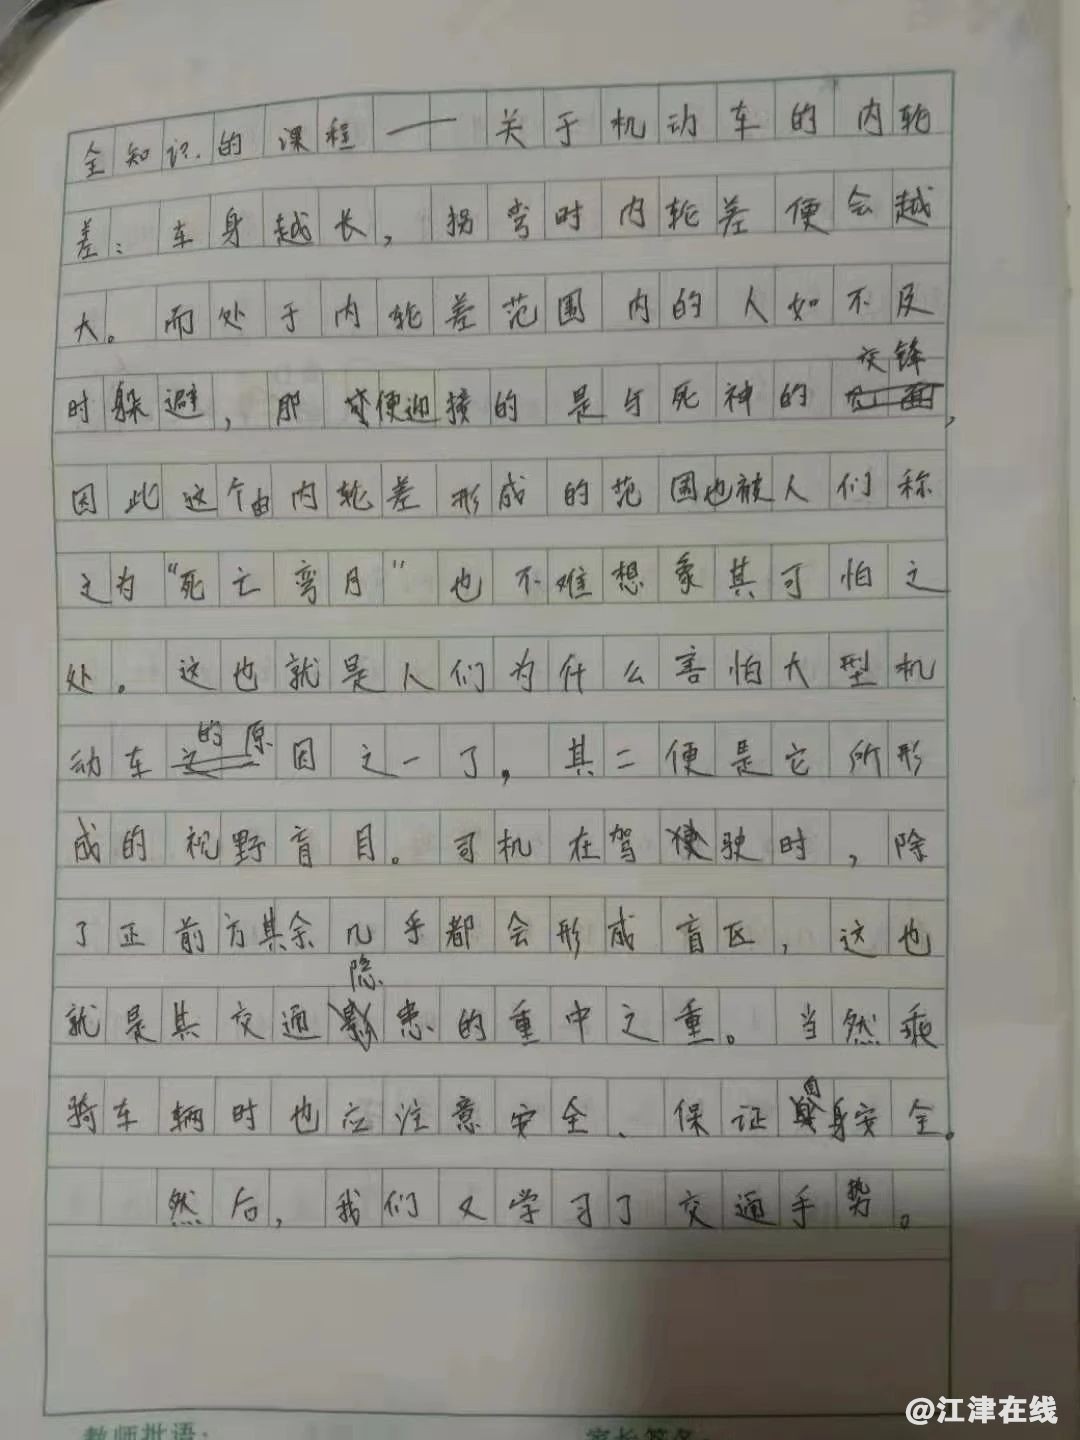 全知识的课程——关于机动车的内轮
差：车身越长，拐弯时内轮差便会越
大。而处于内轮差范围内的人如不及
时躲避，那便迎接的是与死神的交锋，
因此这个由内轮差形成的范围也被人们称
之为“死亡弯月”也不难想象其可怕之
处。这也就是人们为什么害怕大型机
动车的原因之一了，其二便是它所形
成的视野盲目。司机在驾驶时，除
了正前方其余几乎都会形成盲区，这也
就是其交通隐患的重中之重。当然乘
骑车辆时也应注意安全、保证自身安全。
然后，我们又学习了交通手势。
教师批语：
家长签名：
@江津在线